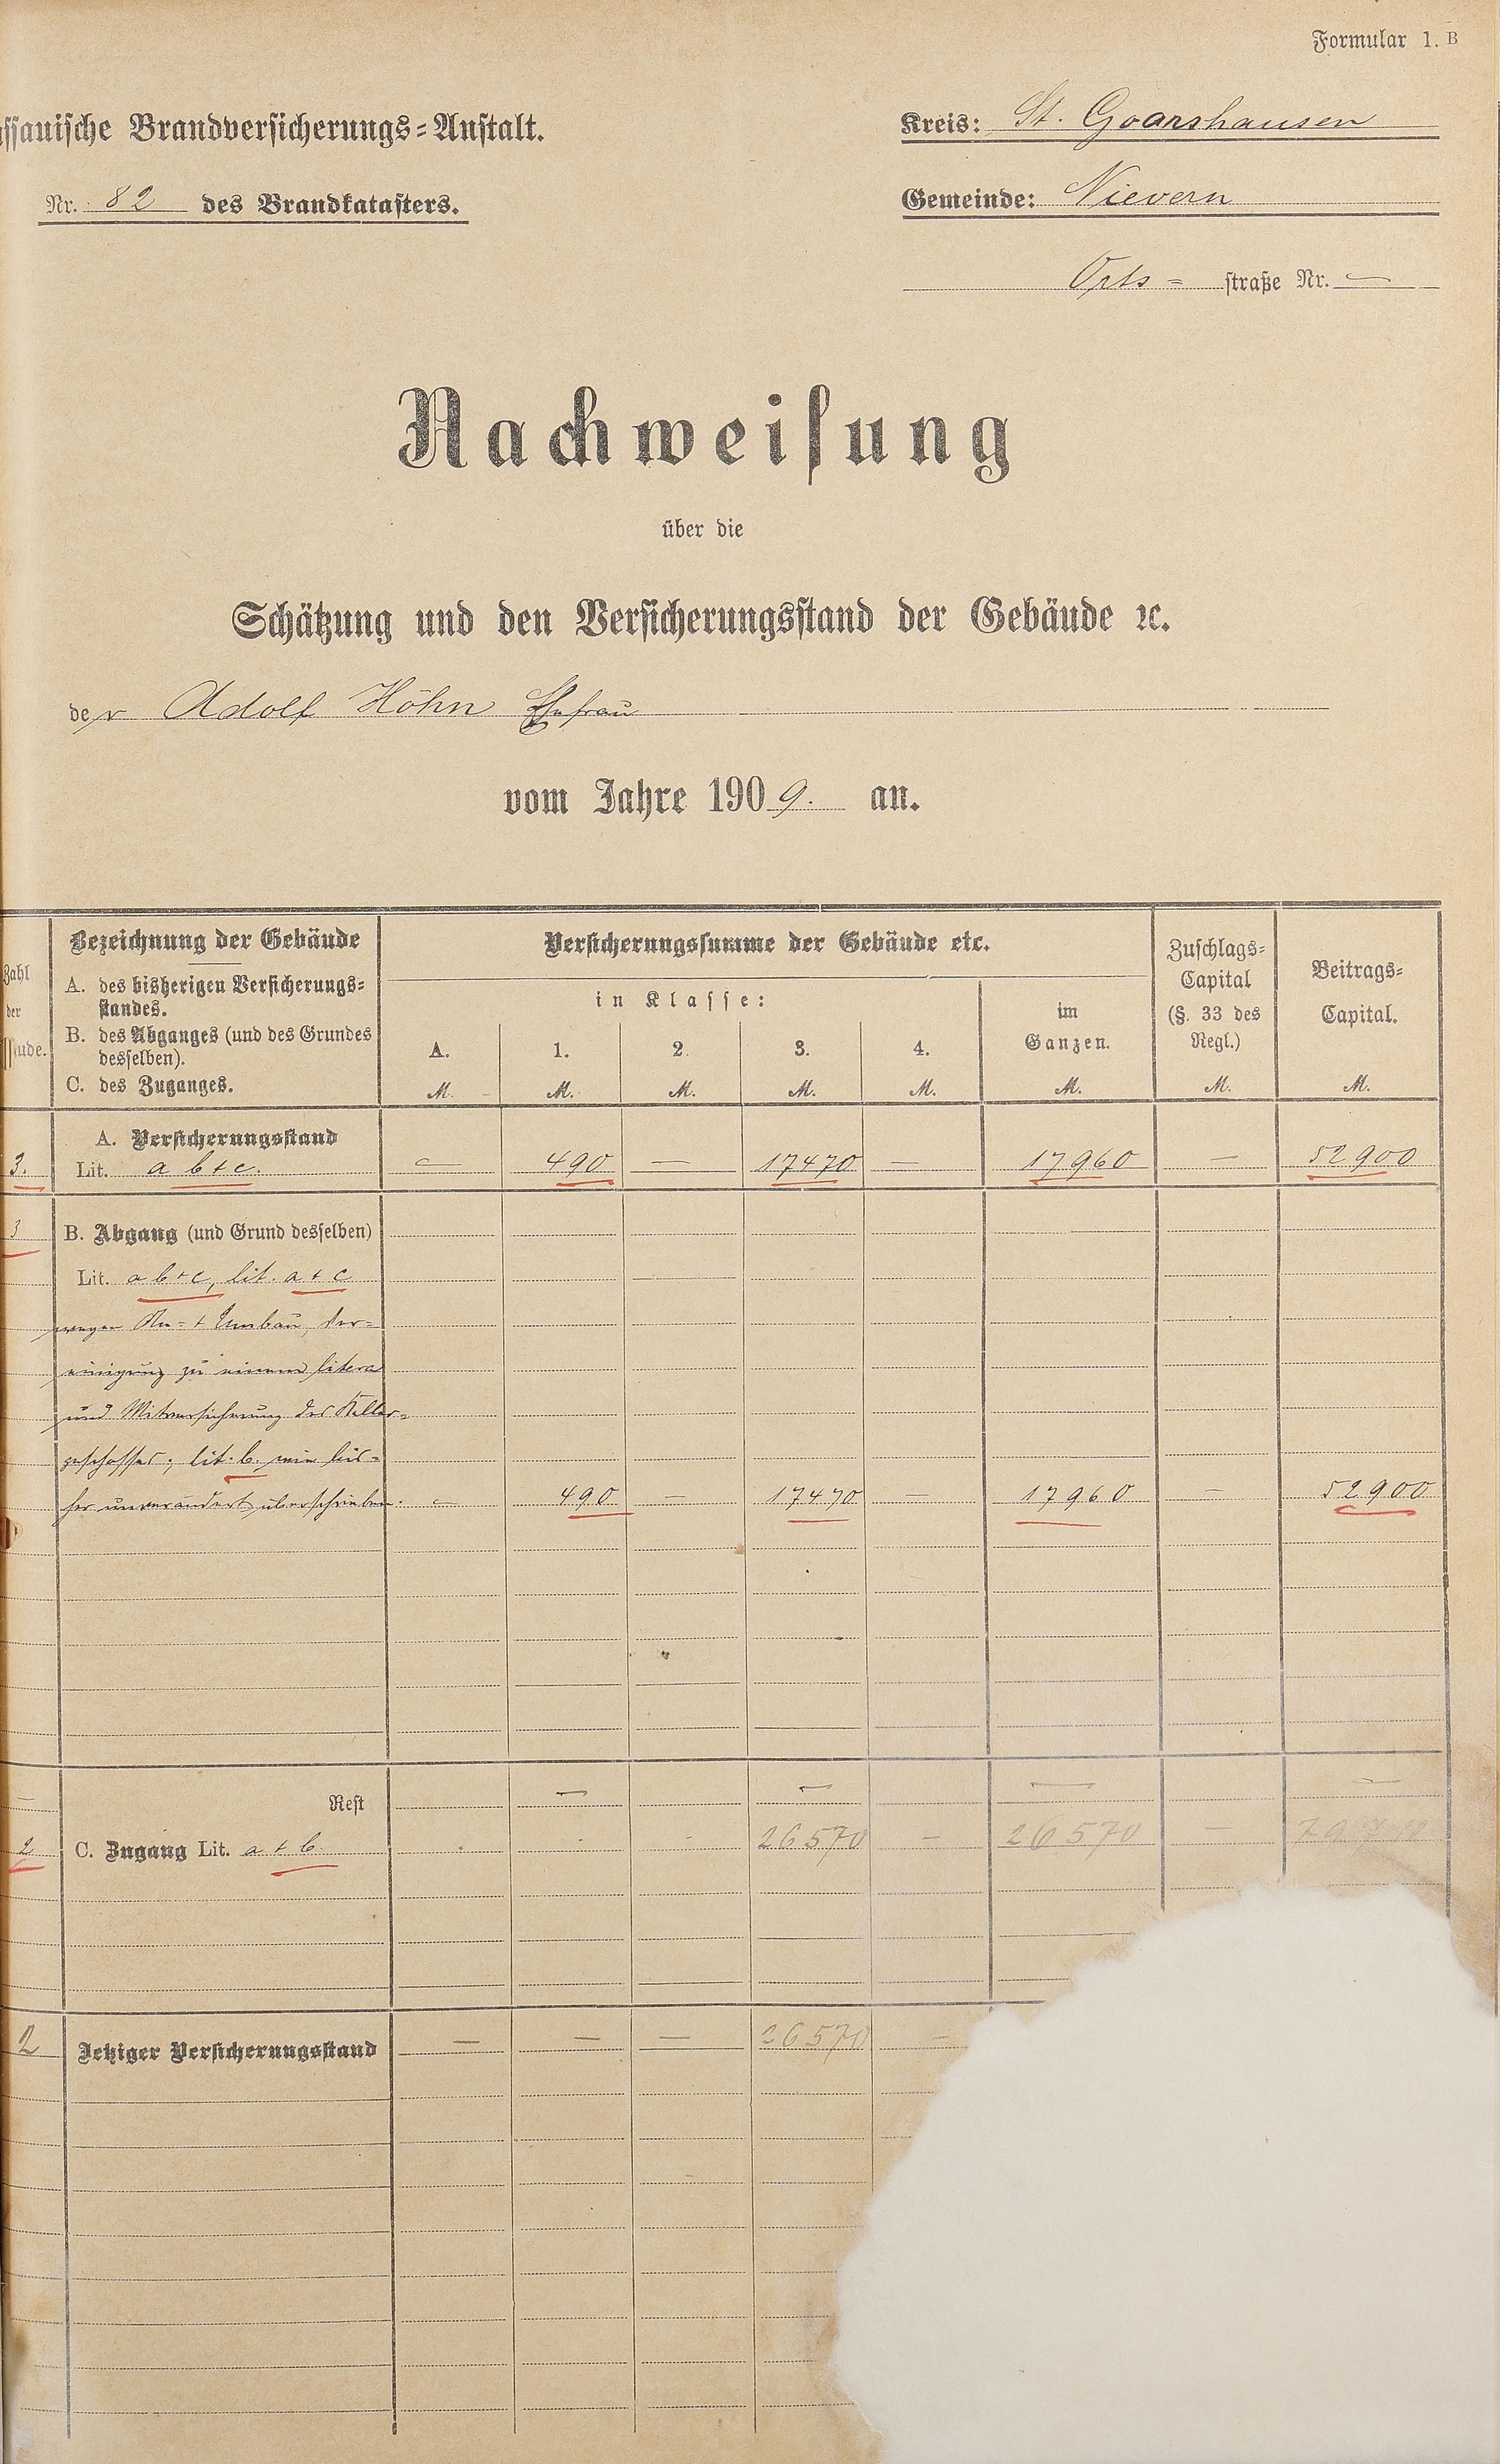 Formular 1. B
ssauische Brandversicherungs=Anstalt.
Kreis: St. Goarshausen
Nr. 82 des Brandkatasters.
Gemeinde: Nievern
Orts= straße Nr. —
Nachweisung
über die
Schätzung und den Versicherungsstand der Gebäude ꝛc.
der Adolf Höhn Ehefrau
vom Jahre 1909. an.
Zahl
der
äude.
Bezeichnung der Gebäude
A. des bisherigen Versicherungs=
standes.
B. des Abganges (und des Grundes
desselben).
C. des Zuganges.
Versicherungssumme der Gebäude etc.
in Klasse:
A. 1. 2. 3. 4.
M. M. M. M. M.
im
Ganzen.
M.
Zuschlags=
Capital
(§. 33 des
Regl.)
M.
Beitrags=
Capital.
M.
A. Versicherungsstand
3. Lit. a b + c. — 490 — 17470 — 17960 — 52900
3 B. Abgang (und Grund desselben)
Lit. a b + c, lit. a + c
wegen An= + Umbau, Ver=
einigung zu einem litera
und Mitversicherung des Keller=
geschosses; lit. b. wie bis=
her unverändert überschrieben. — 490 — 17470 — 17960 — 52900
— Rest — — — —
2 C. Zugang Lit. a + b. 26570 — 26570 — 79710
2 Jetziger Versicherungsstand — — — 26570 —